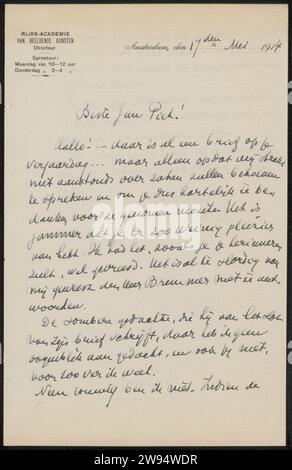 RIJKS-ACADEMIE
VAN BEELDENDE KUNSTEN
Directeur.
Spreekuur:
Maandag van 10–12 uur
Donderdag „ 2–4 „
Amsterdam, den 17den Mei 19
Beste Jan Piet!
hallo! – daar is al een brief op je
verjaardag... maar alleen opdat wij straks
niet aanstonds over zaken zullen behoeven
te spreken en om je dus hartelijk te be
danken voor de genomen moeite. Het is
jammer dat je er zoo weinig pleizier
van hebt. Ik had het, zooals je je herinneren
zult, wel gevreesd. Het is al te
mij geweest den Heer Bremmer niet te
De sombere gedachte, die bij aan het slot
van zijn brief schrijft, daar heb ik geen
oogenblik aan gedacht, en ook jij niet,
voor zoo ver ik weet.
Neen rouwig ben ik niet. Indien de
alamy
Image ID: 2W94WDR
www.alamy.com